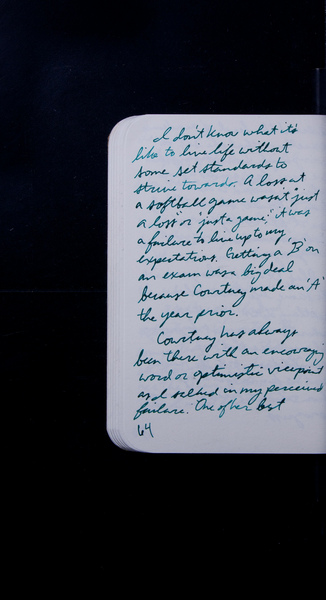 I don't know what it's
like to live life without
some set standards to
strive towards. A loss at
a softball game wasn't just
a "loss" or "just a game," it was
a failure to live up to my
expectations. Getting a 'B' on
an exam was a big deal
because Courtney made an 'A'
the year prior.
Courtney has always
been there with an encouraging
word or optimistic viewpoint
as I sulked in my perceived
failure. One of her best
64